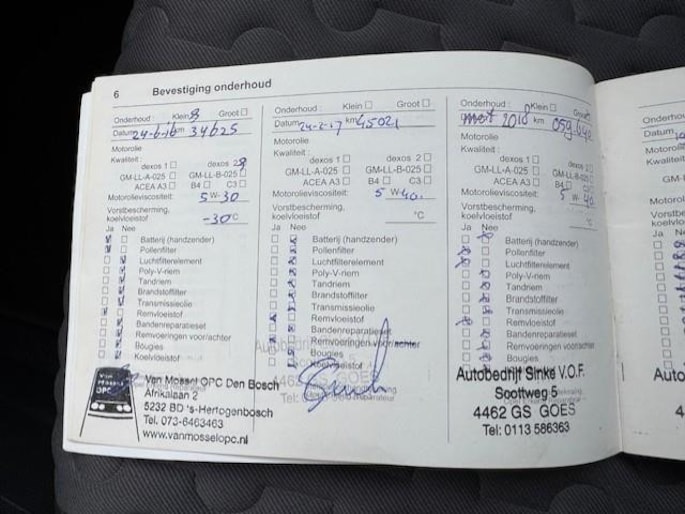 6 Bevestiging onderhoud
Onderhoud : Klein Groot
Datum 24-6-16 km 34625
Motorolie
Kwaliteit :
dexos 1 dexos 2
GM-LL-A-025 GM-LL-B-025
ACEA A3 B4 C3
Motorolieviscositeit: 5 W-30
Vorstbescherming,
koelvloeistof -30°C
Ja Nee
Batterij (handzender)
Pollenfilter
Luchtfilterelement
Poly-V-riem
Tandriem
Brandstoffilter
Transmissieolie
Remvloeistof
Bandenreparatieset
Remvoeringen voor/achter
Bougies
Koelvloeistof
Van Mossel OPC
Van Mossel OPC Den Bosch
Afrikalaan 2
5232 BD 's-Hertogenbosch
Tel. 073-6463463
www.vanmosselopc.nl
Onderhoud : Klein Groot
Datum 24-2-17 km 45021
Motorolie
Kwaliteit :
dexos 1 dexos 2
GM-LL-A-025 GM-LL-B-025
ACEA A3 B4 C3
Motorolieviscositeit: 5 W-40.
Vorstbescherming,
koelvloeistof °C
Ja Nee
Batterij (handzender)
Pollenfilter
Luchtfilterelement
Poly-V-riem
Tandriem
Brandstoffilter
Transmissieolie
Remvloeistof
Bandenreparatieset
Remvoeringen voor/achter
Bougies
Koelvloeistof
Onderhoud : Klein Groot
2018 km
Motorolie
Kwaliteit :
dexos 1 dexos 2
GM-LL-A-025 GM-LL-B-025
ACEA A3 B4 C3
Motorolieviscositeit: 5 W-40
Vorstbescherming,
koelvloeistof °C
Ja Nee
Batterij (handzender)
Pollenfilter
Luchtfilterelement
Poly-V-riem
Tandriem
Brandstoffilter
Transmissieolie
Remvloeistof
Bandenreparatieset
Remvoeringen voor/achter
Bougies
Autobedrijf Sinke V.O.F.
Soottweg 5
4462 GS GOES
Tel: 0113 586363